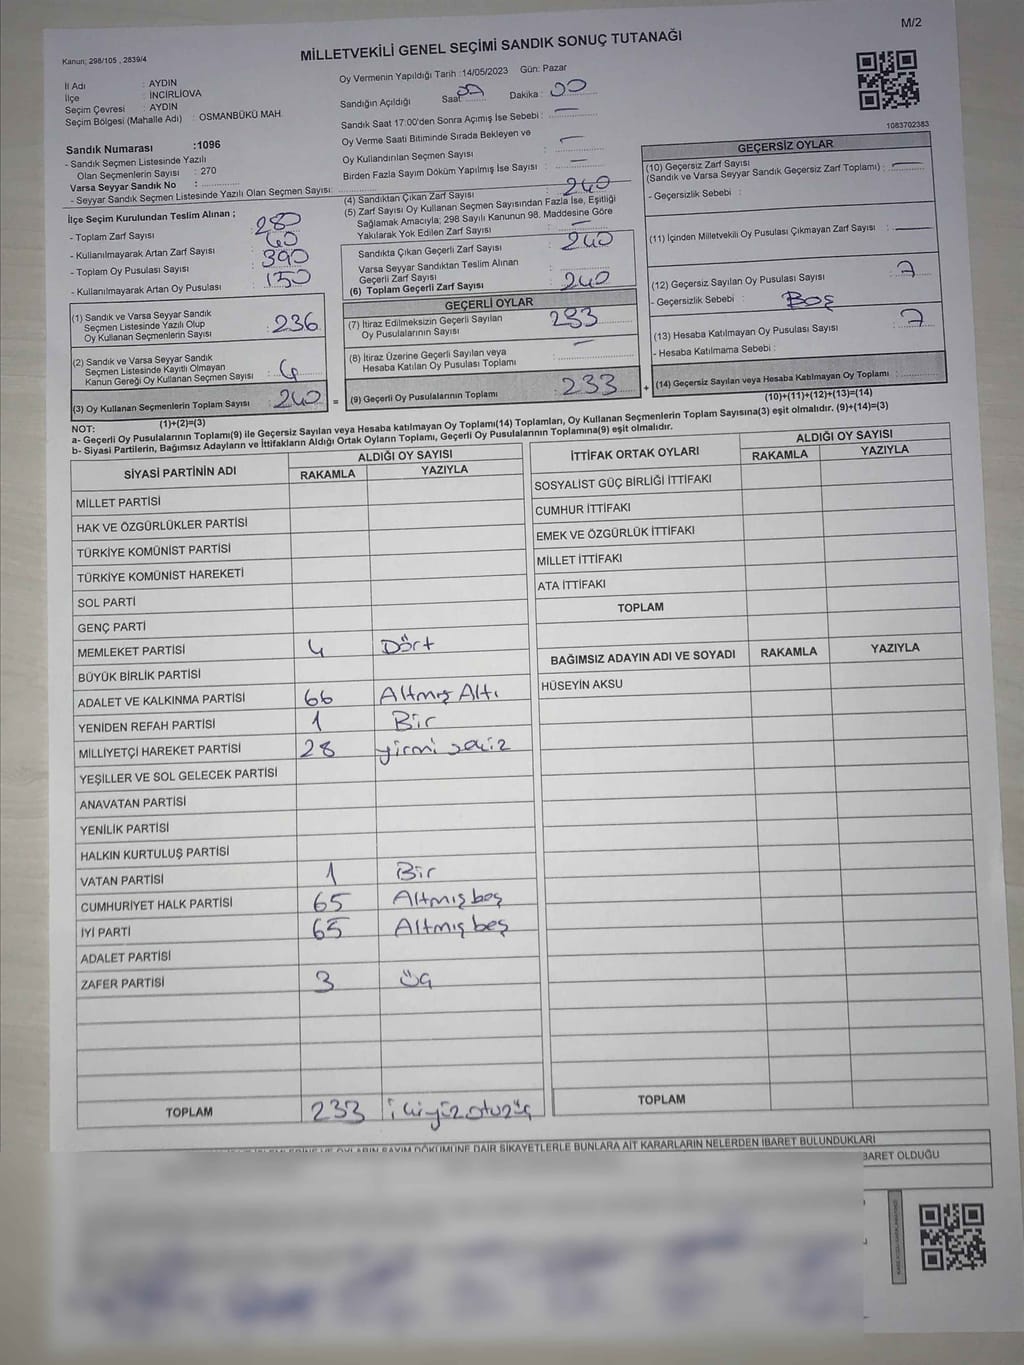 M/2
Kanun; 298/105 , 2839/4
MİLLETVEKİLİ GENEL SEÇİMİ SANDIK SONUÇ TUTANAĞI
İl Adı : AYDIN
İlçe : İNCİRLİOVA
Seçim Çevresi : AYDIN
Seçim Bölgesi (Mahalle Adı) : OSMANBÜKÜ MAH.
Oy Vermenin Yapıldığı Tarih :14/05/2023 Gün: Pazar
Sandığın Açıldığı Saat: Dakika : 00
Sandık Saat 17:00'den Sonra Açımış İse Sebebi : —
Oy Verme Saati Bitiminde Sırada Bekleyen ve
Oy Kullandırılan Seçmen Sayısı : —
Birden Fazla Sayım Döküm Yapılmış İse Sayısı : —
1083702383
Sandık Numarası :1096
- Sandık Seçmen Listesinde Yazılı
Olan Seçmenlerin Sayısı : 270
Varsa Seyyar Sandık No :
- Seyyar Sandık Seçmen Listesinde Yazılı Olan Seçmen Sayısı:
İlçe Seçim Kurulundan Teslim Alınan ;
- Toplam Zarf Sayısı : 280
- Kullanılmayarak Artan Zarf Sayısı : 40
- Toplam Oy Pusulası Sayısı : 390
- Kullanılmayarak Artan Oy Pusulası : 150
(1) Sandık ve Varsa Seyyar Sandık
Seçmen Listesinde Yazılı Olup
Oy Kullanan Seçmenlerin Sayısı : 236
(2) Sandık ve Varsa Seyyar Sandık
Seçmen Listesinde Kayıtlı Olmayan
Kanun Gereği Oy Kullanan Seçmen Sayısı : 4
(3) Oy Kullanan Seçmenlerin Toplam Sayısı : 240
(1)+(2)=(3)
(4) Sandıktan Çıkan Zarf Sayısı : 240
(5) Zarf Sayısı Oy Kullanan Seçmen Sayısından Fazla İse, Eşitliği
Sağlamak Amacıyla; 298 Sayılı Kanunun 98. Maddesine Göre
Yakılarak Yok Edilen Zarf Sayısı : —
Sandıkta Çıkan Geçerli Zarf Sayısı : 240
Varsa Seyyar Sandıktan Teslim Alınan
Geçerli Zarf Sayısı :
(6) Toplam Geçerli Zarf Sayısı : 240
GEÇERLİ OYLAR
(7) İtiraz Edilmeksizin Geçerli Sayılan
Oy Pusulalarının Sayısı : 233
(8) İtiraz Üzerine Geçerli Sayılan veya
Hesaba Katılan Oy Pusulası Toplamı : —
= (9) Geçerli Oy Pusulalarının Toplamı : 233 +
GEÇERSİZ OYLAR
(10) Geçersiz Zarf Sayısı
(Sandık ve Varsa Seyyar Sandık Geçersiz Zarf Toplamı) : —
- Geçersizlik Sebebi :
(11) İçinden Milletvekili Oy Pusulası Çıkmayan Zarf Sayısı : —
(12) Geçersiz Sayılan Oy Pusulası Sayısı : 7
- Geçersizlik Sebebi : Boş
(13) Hesaba Katılmayan Oy Pusulası Sayısı : 7
- Hesaba Katılmama Sebebi :
(14) Geçersiz Sayılan veya Hesaba Katılmayan Oy Toplamı :
(10)+(11)+(12)+(13)=(14)
NOT:
a- Geçerli Oy Pusulalarının Toplamı(9) ile Geçersiz Sayılan veya Hesaba katılmayan Oy Toplamı(14) Toplamları, Oy Kullanan Seçmenlerin Toplam Sayısına(3) eşit olmalıdır. (9)+(14)=(3)
b- Siyasi Partilerin, Bağımsız Adayların ve İttifakların Aldığı Ortak Oyların Toplamı, Geçerli Oy Pusulalarının Toplamına(9) eşit olmalıdır.
SİYASİ PARTİNİN ADI ALDIĞI OY SAYISI
RAKAMLA YAZIYLA
MİLLET PARTİSİ
HAK VE ÖZGÜRLÜKLER PARTİSİ
TÜRKİYE KOMÜNİST PARTİSİ
TÜRKİYE KOMÜNİST HAREKETİ
SOL PARTİ
GENÇ PARTİ
MEMLEKET PARTİSİ 4 Dört
BÜYÜK BİRLİK PARTİSİ
ADALET VE KALKINMA PARTİSİ 66 Altmış Altı
YENİDEN REFAH PARTİSİ 1 Bir
MİLLİYETÇİ HAREKET PARTİSİ 28 yirmi sekiz
YEŞİLLER VE SOL GELECEK PARTİSİ
ANAVATAN PARTİSİ
YENİLİK PARTİSİ
HALKIN KURTULUŞ PARTİSİ
VATAN PARTİSİ 1 Bir
CUMHURİYET HALK PARTİSİ 65 Altmış beş
İYİ PARTİ 65 Altmış beş
ADALET PARTİSİ
ZAFER PARTİSİ 3 üç
TOPLAM 233 ikiyüzotuzüç
İTTİFAK ORTAK OYLARI ALDIĞI OY SAYISI
RAKAMLA YAZIYLA
SOSYALİST GÜÇ BİRLİĞİ İTTİFAKI
CUMHUR İTTİFAKI
EMEK VE ÖZGÜRLÜK İTTİFAKI
MİLLET İTTİFAKI
ATA İTTİFAKI
TOPLAM
BAĞIMSIZ ADAYIN ADI VE SOYADI RAKAMLA YAZIYLA
HÜSEYİN AKSU
TOPLAM
OYLARIN SAYIM DÖKÜMÜNE DAİR ŞİKAYETLERLE BUNLARA AİT KARARLARIN NELERDEN İBARET BULUNDUKLARI
BARET OLDUĞU